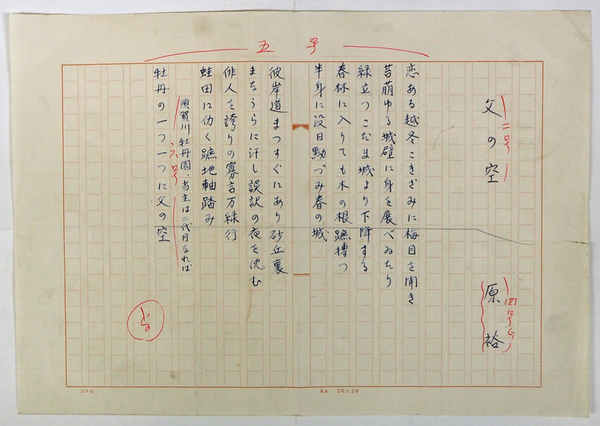 五号
父の空
二号
原裕
恋ある越冬こきざみに梅目を開き
苔萌ゆる城壁に身を展べゐたり
緑立つこだま城より下降する
春林に入りても木の根蹠搏つ
半身に没日勤づみ春の城
彼岸道まつすぐにあり砂丘裏
まなうらに汗し誤訳の夜を沈む
俳人を誇りの寡言万緑行
蛙田に働く蹠地軸踏み
須賀川牡丹園・当主は二代目なれば
六号
牡丹の一つ一つに父の空
20×20